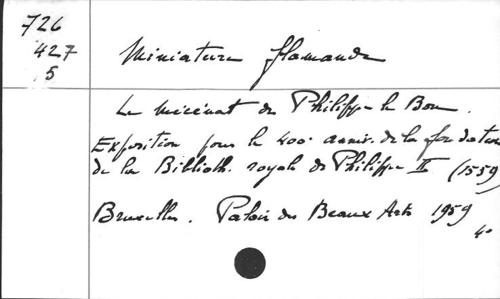 726
427
5
Miniature flamande
Le mécénat de Philippe le Bon.
Exposition pour le 400e anniv. de la fondation
de la Biblioth. royale de Philippe II (1559)
Bruxelles. Palais des Beaux Arts 1959
4°